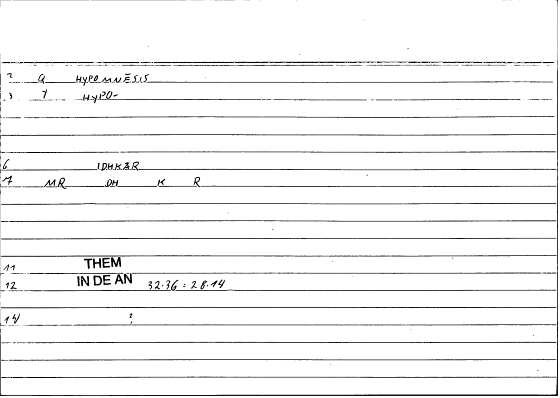 2 G HYPOMNĒSIS
3 7 HYPO-
6 IDHKĀR
7 MR DH K R
11 THEM
12 IN DE AN 32.36 = 28.14
14 ?